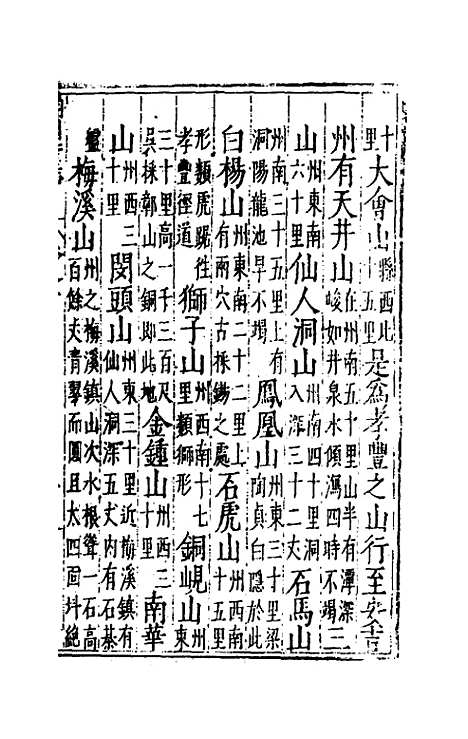 十里大會山縣西北十五里是爲孝豐之山行至安吉
州有天井山在州南五十里山半有潭深峻如井泉水傾瀉四時不竭三
山州東南六十里仙人洞山州南四十里洞入深三十二丈石馬山
州南三十五里上有洞陽龍池旱不竭鳳凰山州東三十里梁陶貞白隱於此
白楊山州東南二十二里上有兩穴古採錫之處石虎山州西南十五里
形類虎踞往孝豐徑道獅子山州西南十七里類獅形銅峴山州東
三十里高一千三百尺吳採鄣山之銅即此地金鐘山州西三十里南華
山州西三十里閔頭山州東三十里近梅溪鎮有仙人洞深五丈内有石碁
盤梅溪山州之梅溪鎮山次水根聳一石高百餘丈青翠而圓且大四面抖絶